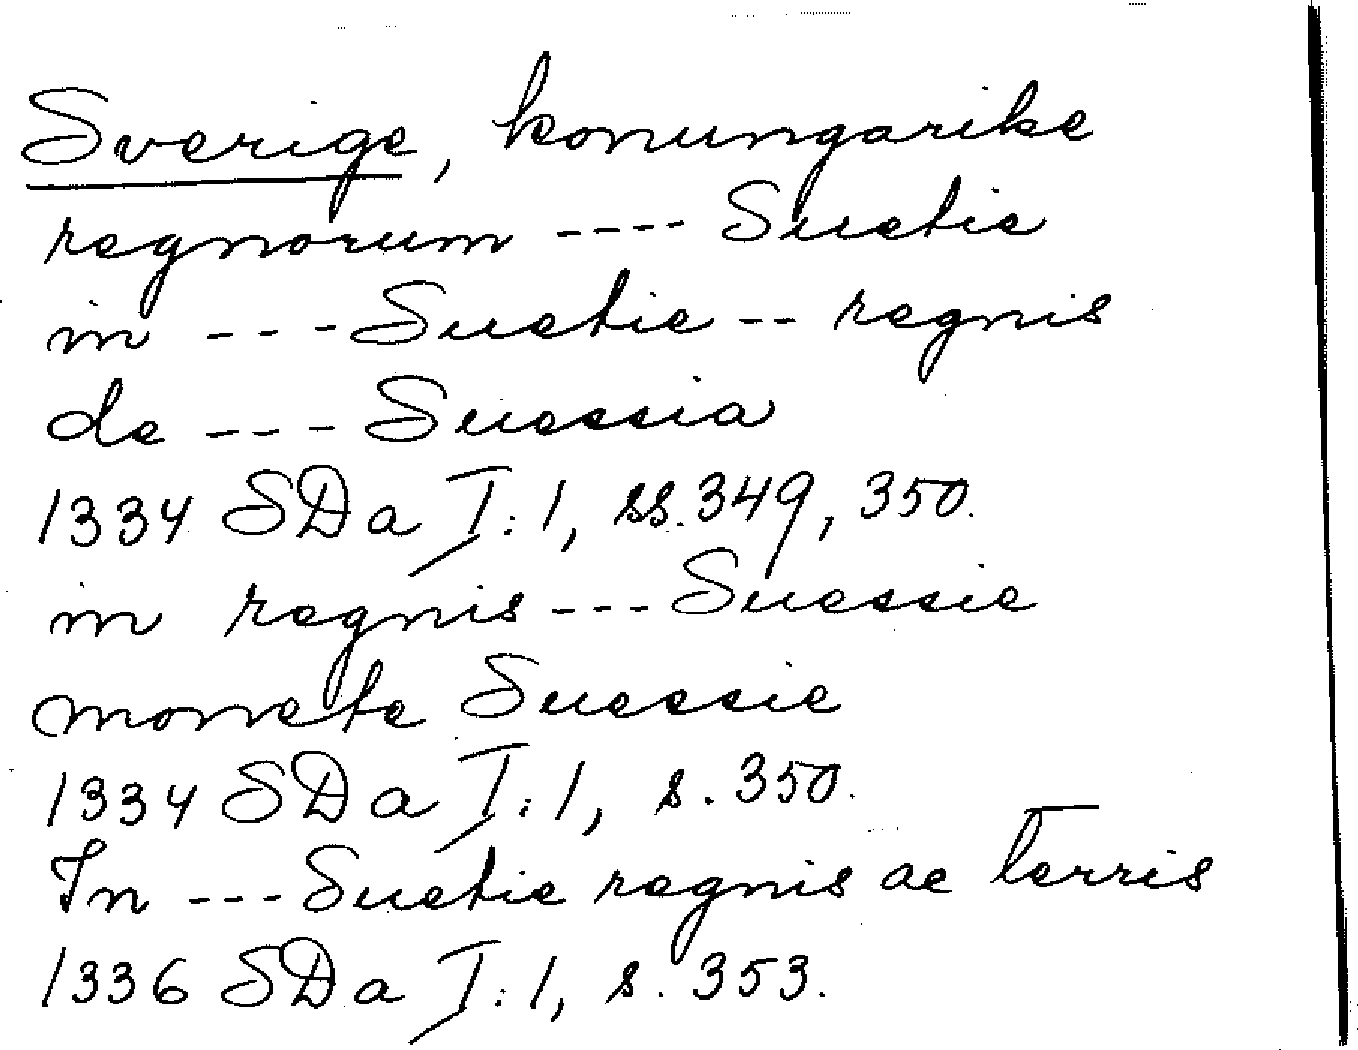 Sverige, konungarike
regnorum ---- Suetie
in --- Suetie -- regnis
de --- Suessia
1334 SDa I:1, ss. 349, 350.
in regnis --- Suessie
monete Suessie
1334 SDa I:1, s. 350.
In --- Suetie regnis ac terris
1336 SDa I:1, s. 353.